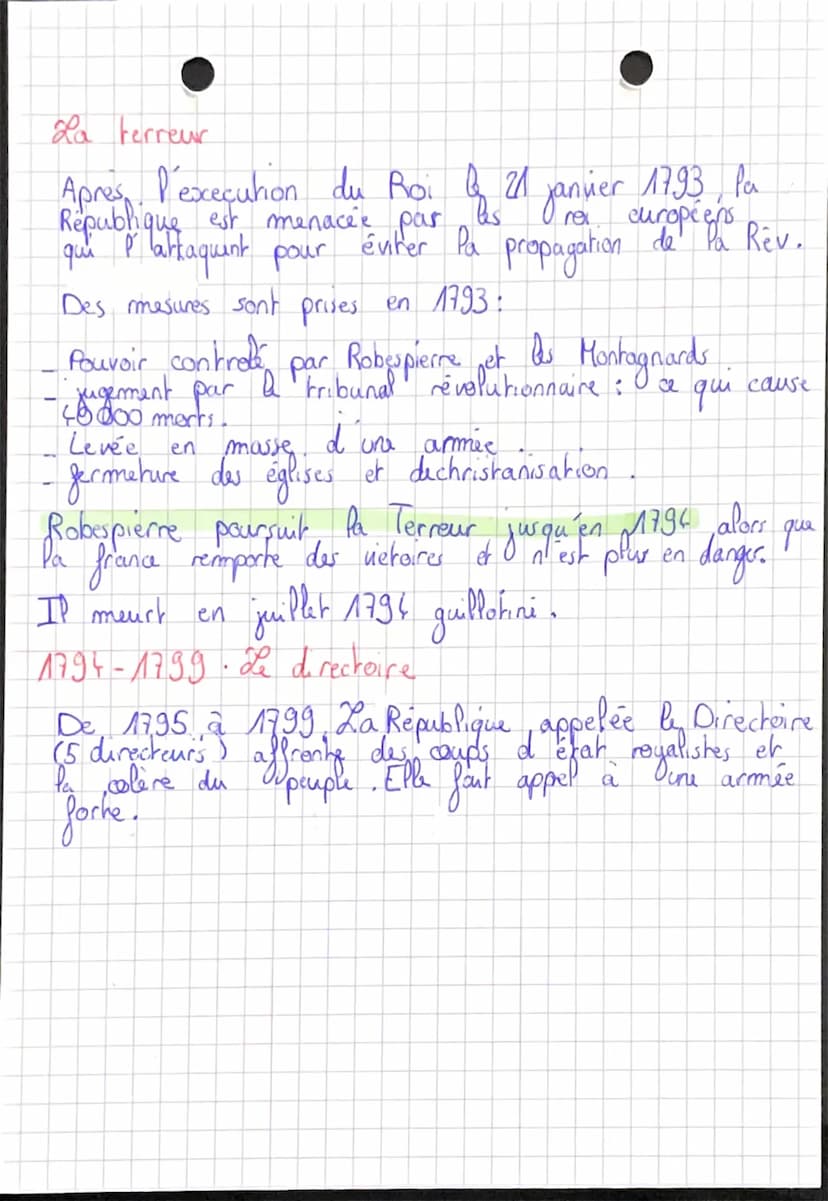 La terreur
Après l'execution du Roi le 21 janvier 1793, la
République est menacée par les roi européens
qui l'attaquent pour éviter la propagation de la Rév.
Des mesures sont prises en 1793 :
- Pouvoir controlé par Robespierre et les Montagnards
- jugement par le tribunal révolutionnaire : ce qui cause
40 000 morts.
- Levée en masse d'une armée.
- fermeture des églises et dechristanisation.
Robespierre poursuit la Terreur jusqu'en 1794, alors que
la france remporte des victoires et n'est plus en danger.
Il meurt en juillet 1794 guillotiné.
1794-1799. Le directoire
De 1795 à 1799, La République, appelée le Directoire
(5 directeurs) affronte des coups d'état royalistes et
la colère du peuple. Elle fait appel à une armée
forte.